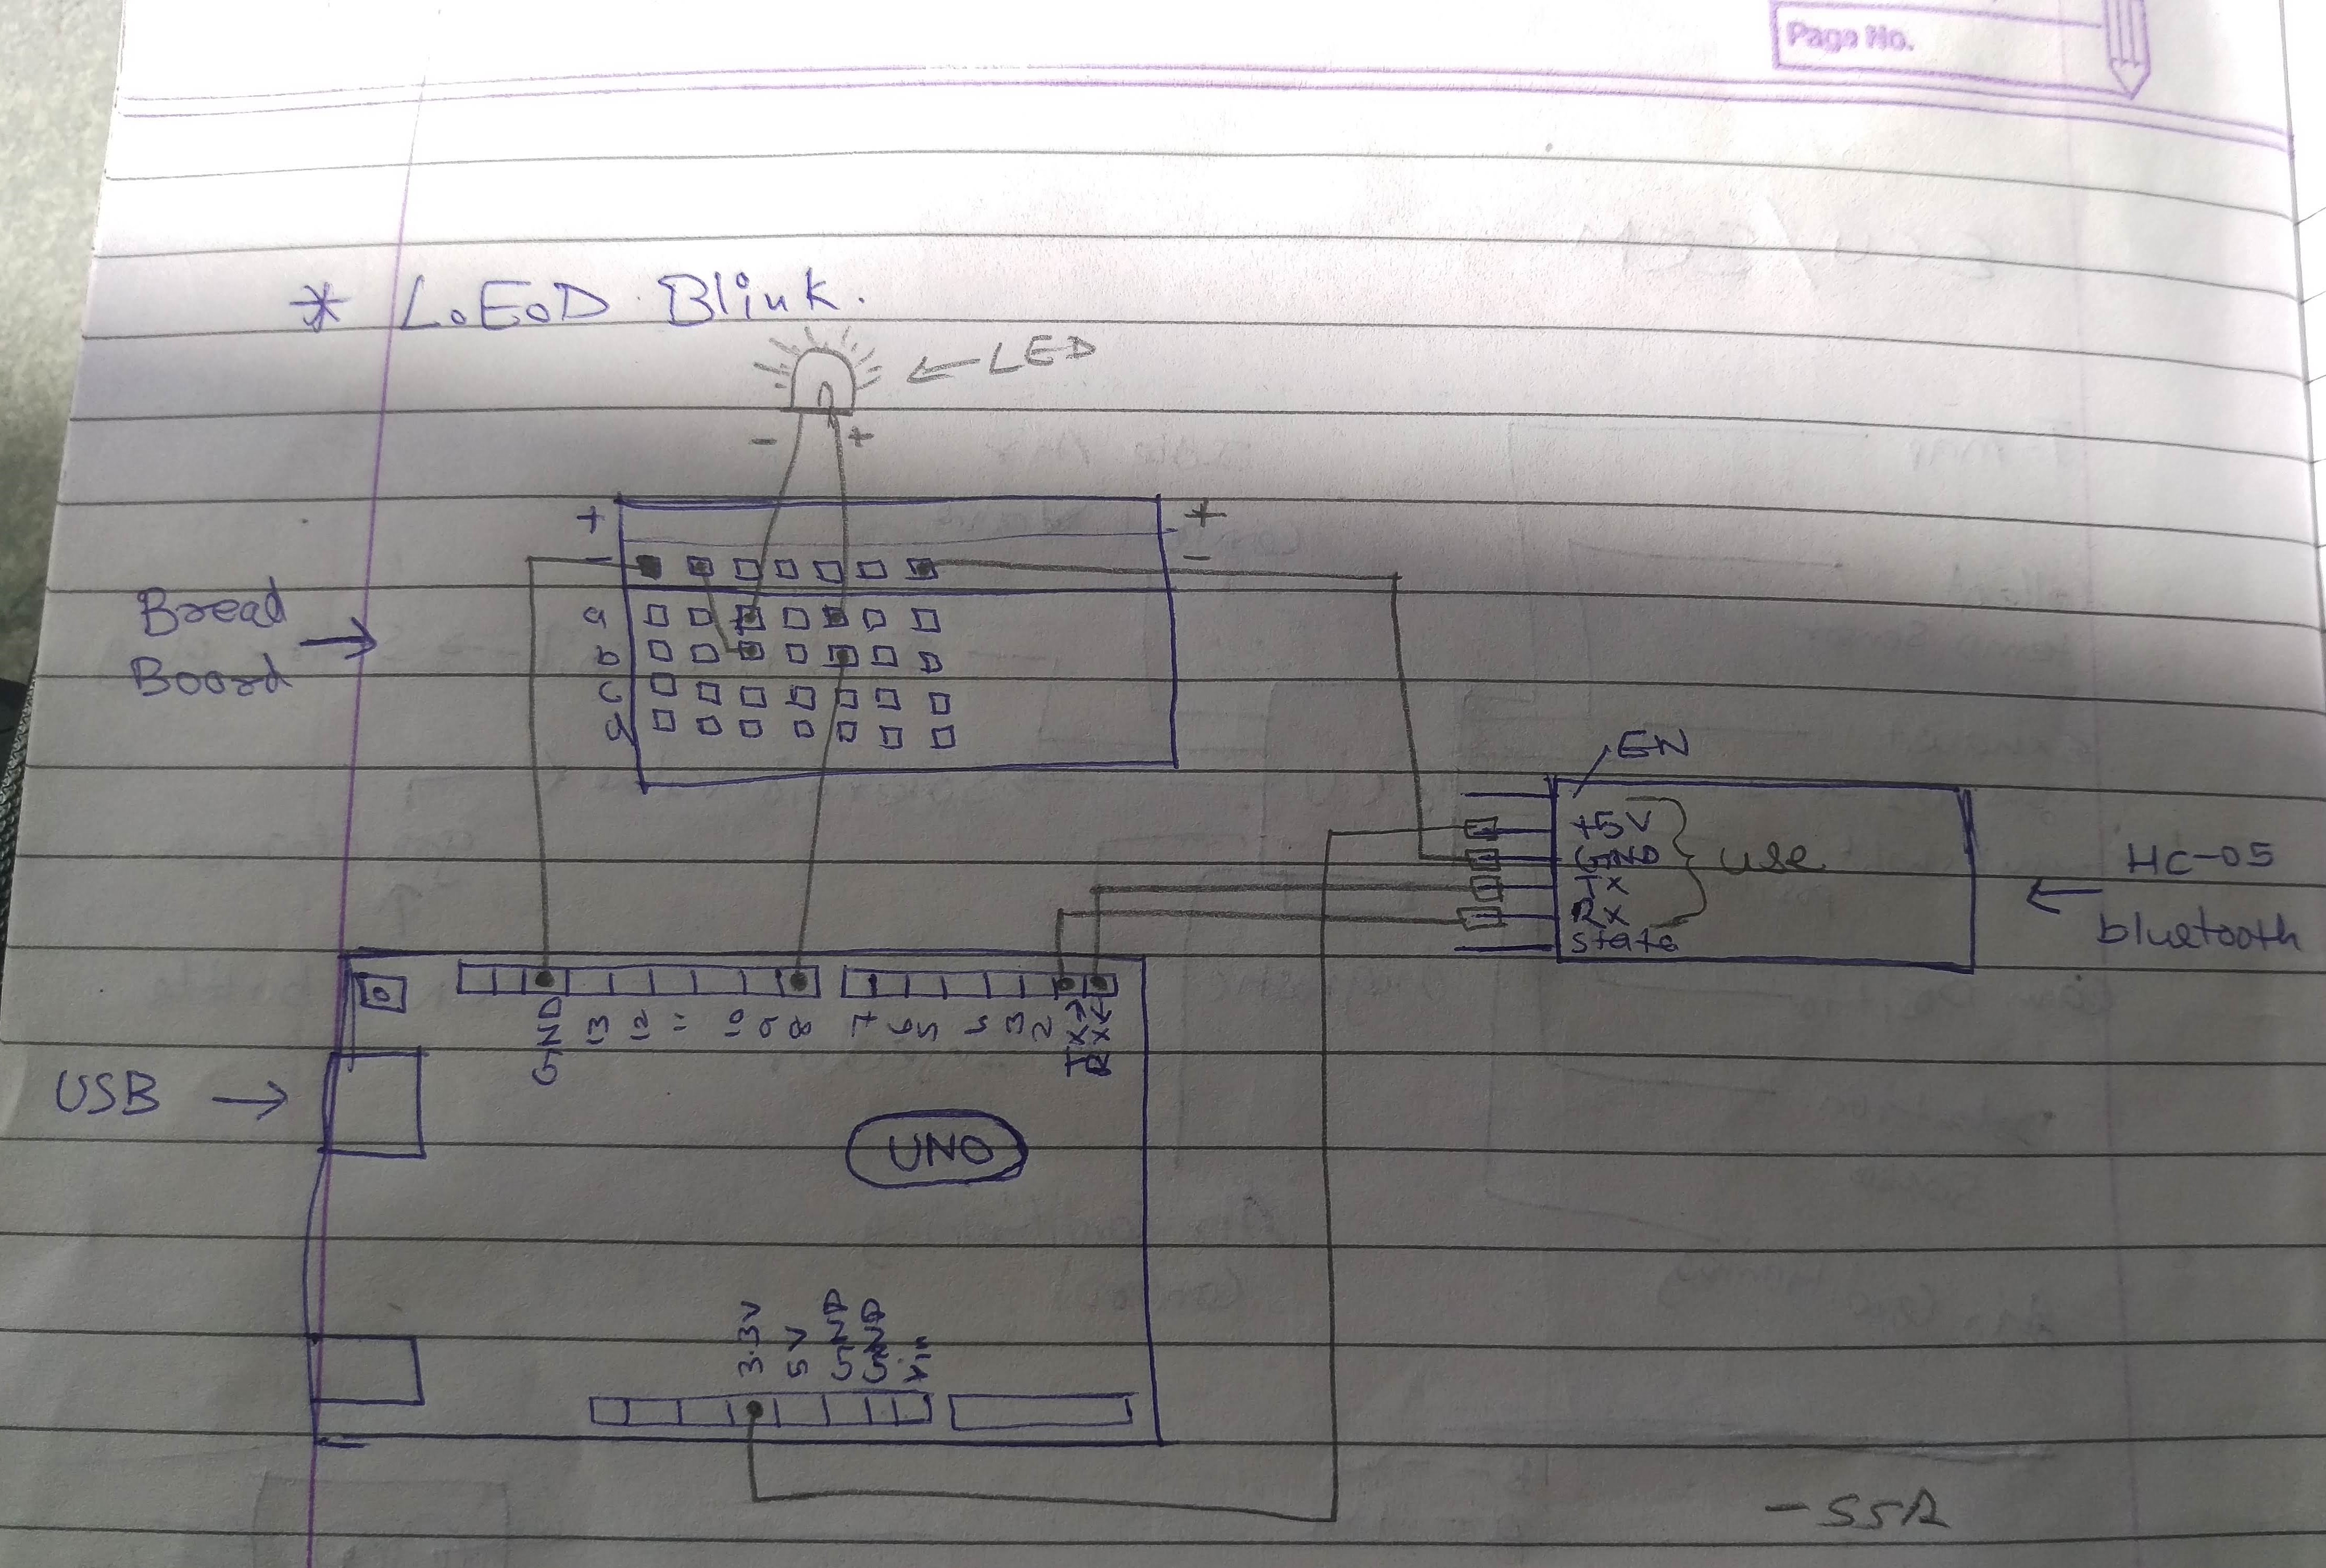 Page No.
* L.E.D. Blink.
← LED
- +
+ +
- -
Bread
Board →
a
b
c
d
EN
+5V
GND
Tx
Rx
state
use
← HC-05
bluetooth
GND 13 12 11 10 9 8 7 6 5 4 3 2 TX→ RX←
USB →
UNO
3.3V 5V GND GND Vin
- SSR